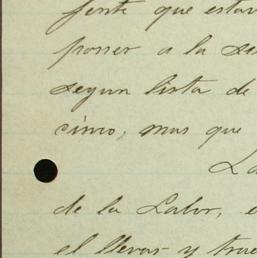 fente que estav
poner a la se
segun lista de
cinco, mas que
La
de la Labor, e
el llevar y trae